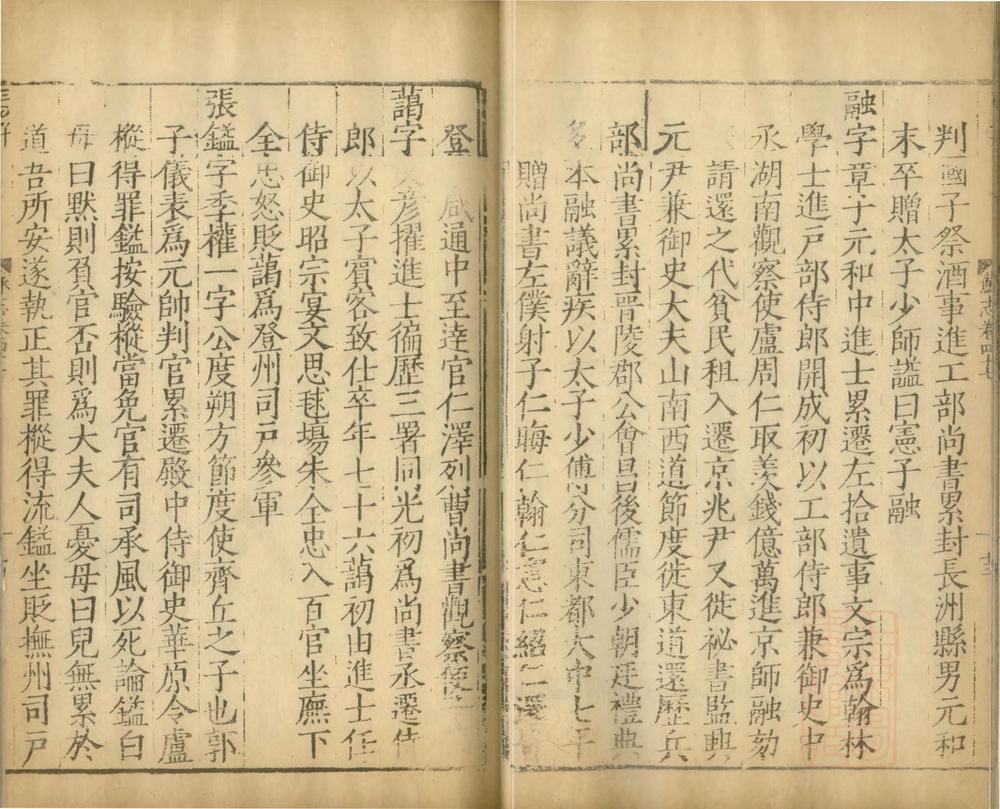 判國子祭酒事進工部尚書累封長洲縣男元和
末卒贈太子少師謚曰憲子融
融字章子元和中進士累遷左拾遺事文宗爲翰林
學士進戸部侍郎開成初以工部侍郎兼御史中
丞湖南觀察使盧周仁取羡錢億萬進京師融劾
請還之代貧民租入遷京兆尹又徙祕書監興
元尹兼御史大夫山南西道節度徙東道還歷兵
部尚書累封晋陵郡公會昌後儒臣少朝廷禮典
多本融議辭疾以太子少傅分司東都大中七年
贈尚書左僕射子仁晦仁翰仁憲仁紹仁澤
登咸通中至逹官仁澤列曹尚書觀察使
藹字彦擢進士徧歷三署同光初爲尚書丞遷
郎以太子賓客致仕卒年七十六藹初由進士任
侍御史昭宗宴文思毬塲朱全忠入百官坐廡下
全忠怒貶藹爲登州司戸參軍
張鎰字季權一字公度朔方節度使齊丘之子也郭
子儀表爲元帥判官累遷殿中侍御史華原令盧
樅得罪鎰按驗樅當免官有司承風以死論鎰白
母曰默則負官否則爲大夫人憂母曰兒無累於
道吾所安遂執正其罪樅得流鎰坐貶撫州司戸